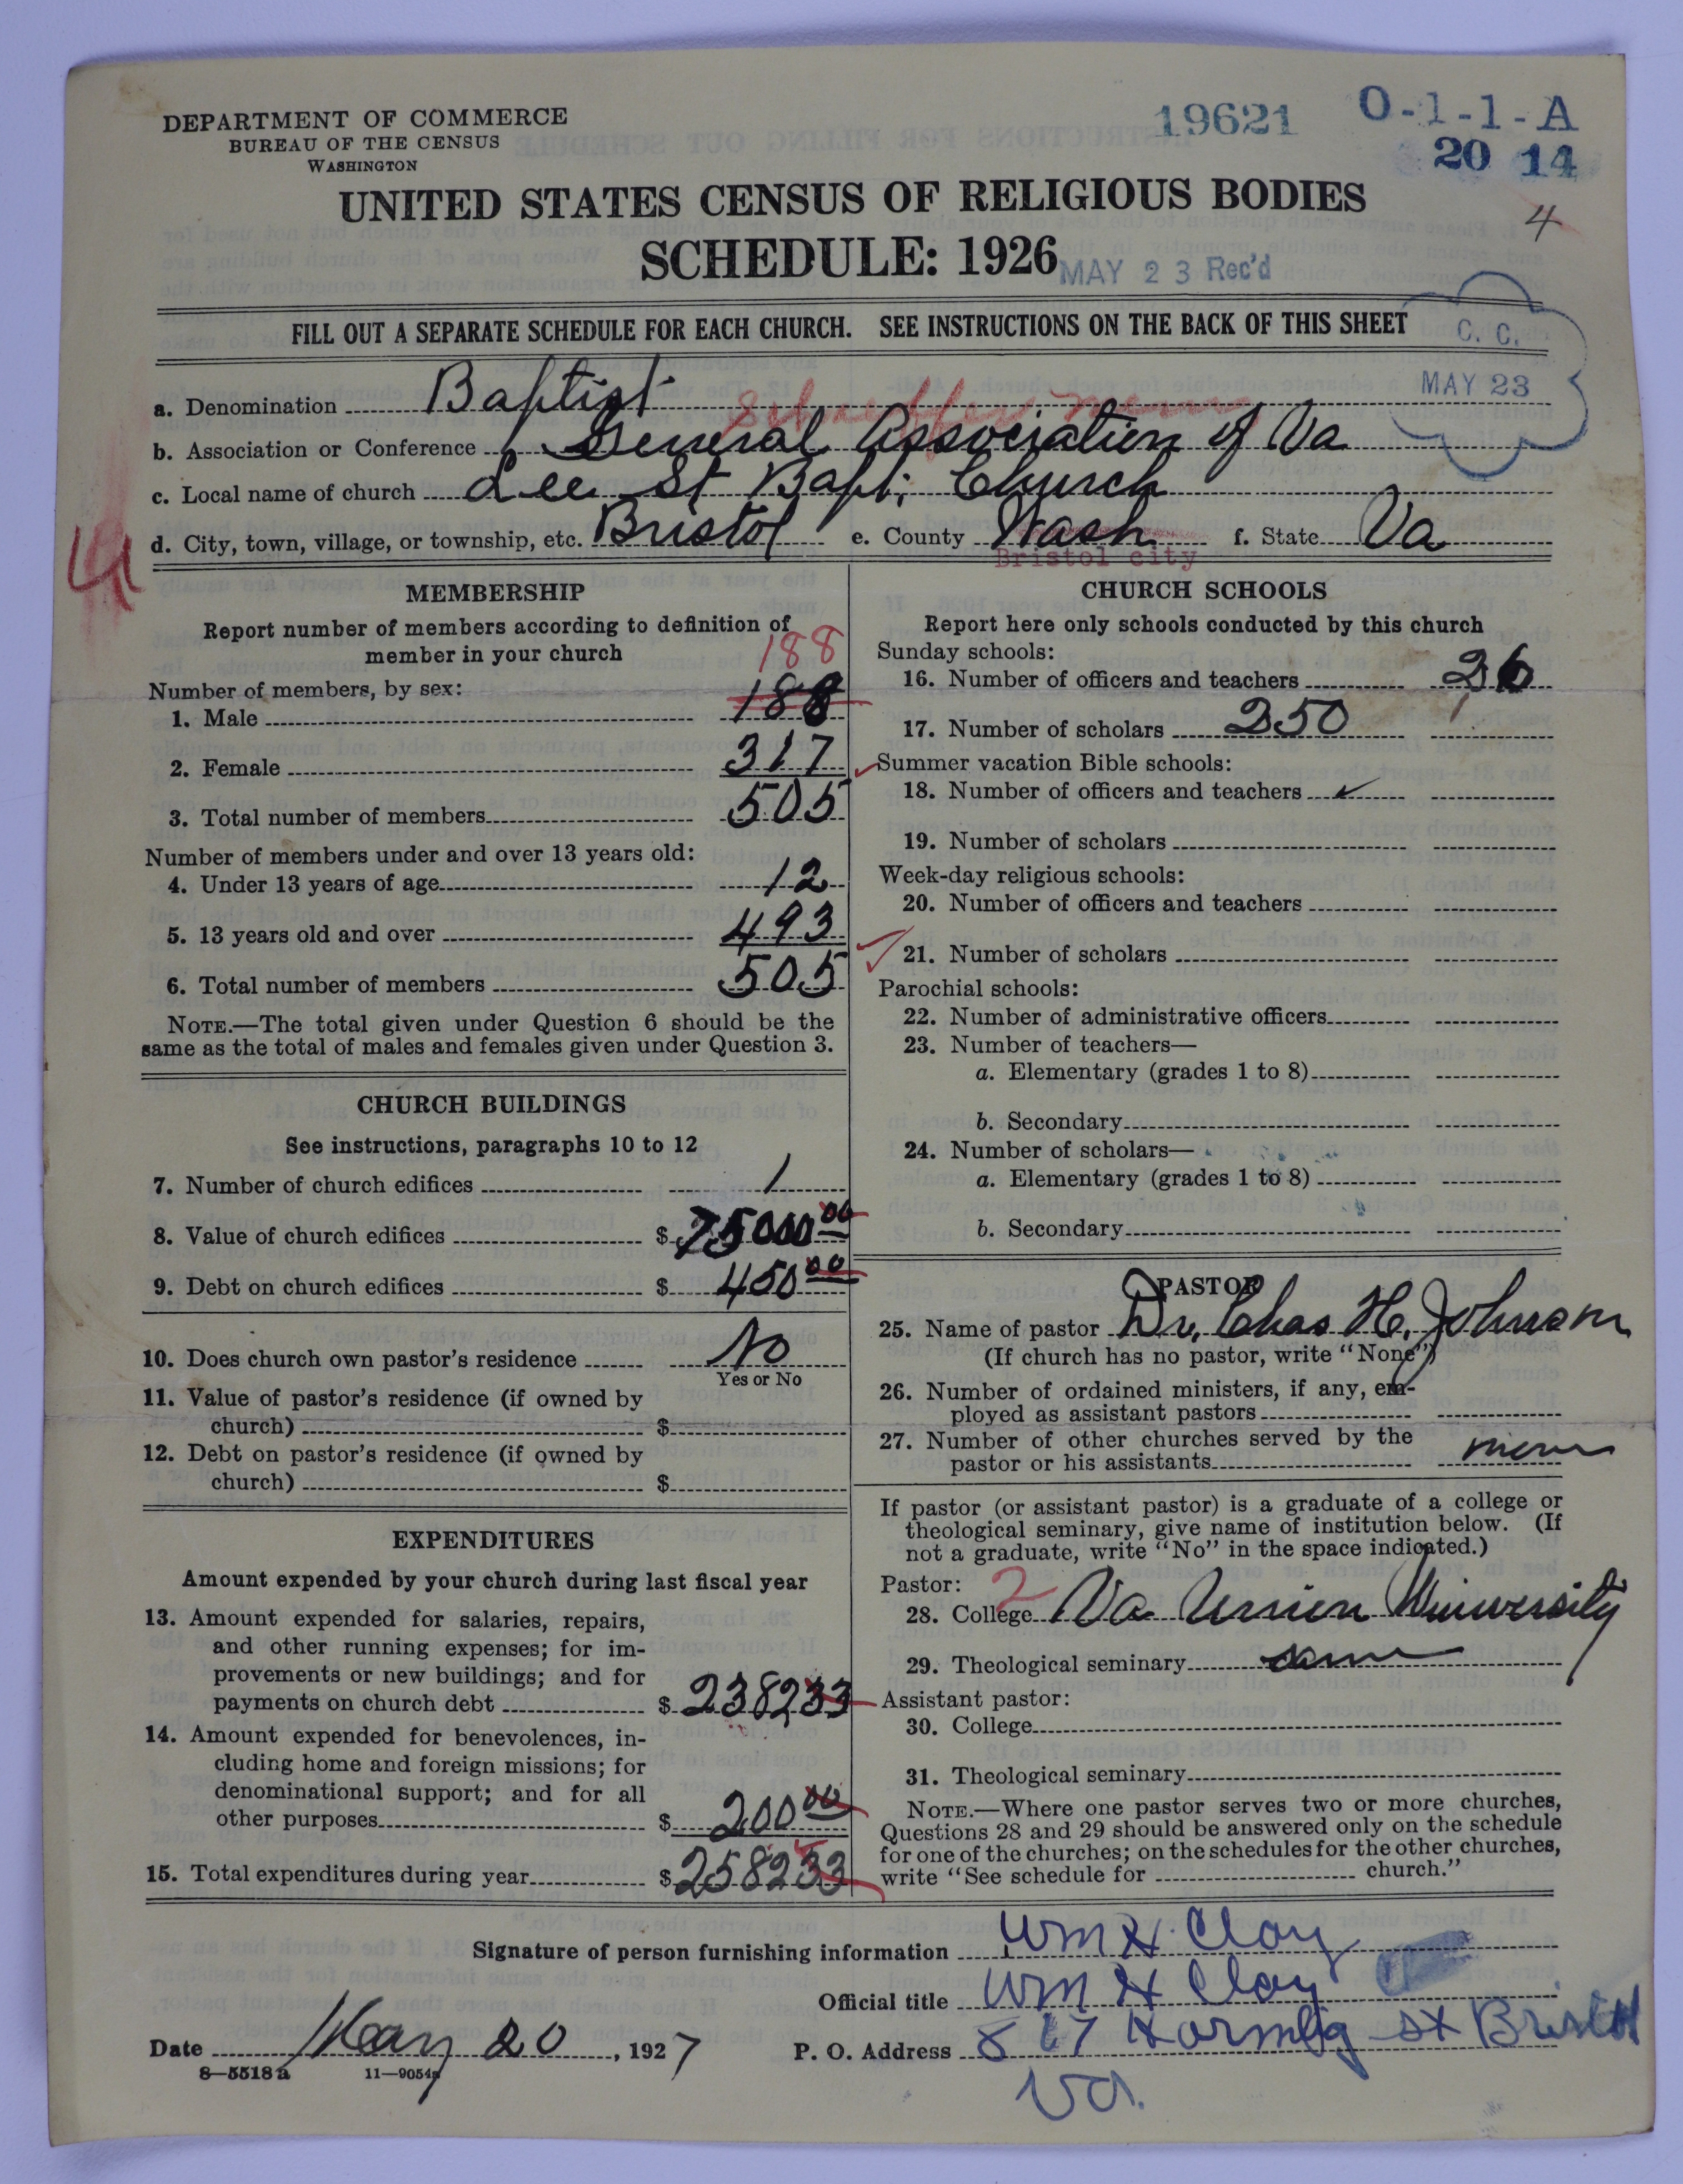 DEPARTMENT OF COMMERCE
BUREAU OF THE CENSUS
WASHINGTON
19621 O-1-1-A
20 14
UNITED STATES CENSUS OF RELIGIOUS BODIES
4
SCHEDULE: 1926
MAY 23 Rec'd
FILL OUT A SEPARATE SCHEDULE FOR EACH CHURCH. SEE INSTRUCTIONS ON THE BACK OF THIS SHEET
C. C.
MAY 23
a. Denomination Baptist
b. Association or Conference General Association of Va
c. Local name of church Lee St Bapt. Church
d. City, town, village, or township, etc. Bristol e. County Wash f. State Va
Bristol city
4
MEMBERSHIP
Report number of members according to definition of
member in your church
188
Number of members, by sex:
1. Male 188
2. Female 317
3. Total number of members 505
Number of members under and over 13 years old:
4. Under 13 years of age 12
5. 13 years old and over 493
6. Total number of members 505
NOTE.—The total given under Question 6 should be the
same as the total of males and females given under Question 3.
CHURCH BUILDINGS
See instructions, paragraphs 10 to 12
7. Number of church edifices 1
8. Value of church edifices $ 75000 00
9. Debt on church edifices $ 450 00
10. Does church own pastor's residence No
Yes or No
11. Value of pastor's residence (if owned by
church) $
12. Debt on pastor's residence (if owned by
church) $
EXPENDITURES
Amount expended by your church during last fiscal year
13. Amount expended for salaries, repairs,
and other running expenses; for im-
provements or new buildings; and for
payments on church debt $ 238233
14. Amount expended for benevolences, in-
cluding home and foreign missions; for
denominational support; and for all
other purposes $ 200 00
15. Total expenditures during year $ 258233
CHURCH SCHOOLS
Report here only schools conducted by this church
Sunday schools:
16. Number of officers and teachers 26
17. Number of scholars 250
Summer vacation Bible schools:
18. Number of officers and teachers
19. Number of scholars
Week-day religious schools:
20. Number of officers and teachers
21. Number of scholars
Parochial schools:
22. Number of administrative officers
23. Number of teachers—
a. Elementary (grades 1 to 8)
b. Secondary
24. Number of scholars—
a. Elementary (grades 1 to 8)
b. Secondary
PASTOR
25. Name of pastor Dr. Chas H. Johnson
(If church has no pastor, write "None")
26. Number of ordained ministers, if any, em-
ployed as assistant pastors
27. Number of other churches served by the
pastor or his assistants
If pastor (or assistant pastor) is a graduate of a college or
theological seminary, give name of institution below. (If
not a graduate, write "No" in the space indicated.)
Pastor: 2
28. College Va Union University
29. Theological seminary same
Assistant pastor:
30. College
31. Theological seminary
NOTE.—Where one pastor serves two or more churches,
Questions 28 and 29 should be answered only on the schedule
for one of the churches; on the schedules for the other churches,
write "See schedule for church."
Signature of person furnishing information Wm H. Clay
Official title Wm H Clay
Date May 20, 1927 P. O. Address 817 St Bristol
Va.
8—5518 a 11—9054